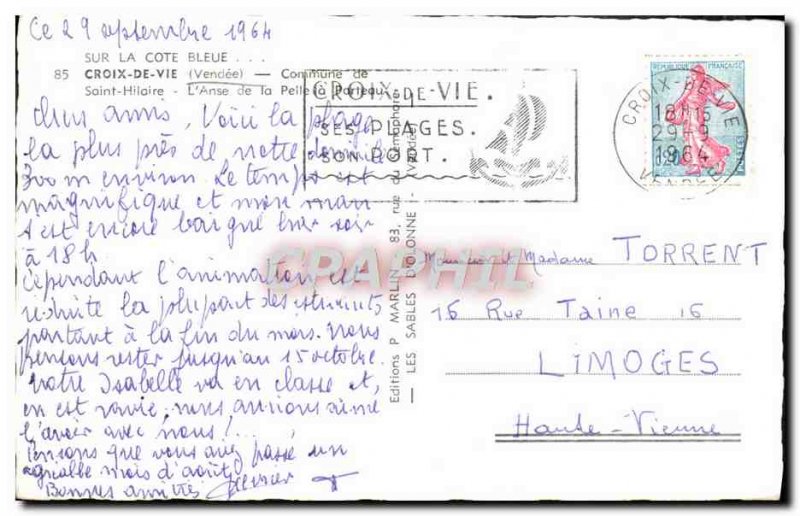 Ce 29 septembre 1964
SUR LA COTE BLEUE . . .
85 CROIX-DE-VIE (Vendée) — Commune de
Saint-Hilaire - L'Anse de la Pelle à Porteau
CROIX-DE-VIE.
SES PLAGES.
SON PORT.
CROIX-DE-VIE
18H15
29-9
1964
VENDÉE
REPUBLIQUE FRANÇAISE
POSTES
chers amis, Voici la plage
la plus près de notre
300 m environ. Le temps est
magnifique et mon mari
s'est encore baigné hier soir
à 18h
Cependant l'animation est
réduite la plupart des estivants
partant à la fin du mois. Nous
pensons rester jusqu'au 15 octobre.
Notre Isabelle va en classe et
en est ravie, nous aurions aimé
l'avoir avec nous!...
Pensons que vous avez passé un
agréable mois d'août
Bonnes amitiés
Editions P MARLIN, 83, rue du Sémaphore
— LES SABLES D'OLONNE - (Vendée)
CPRAPHIL
Monsieur et Madame TORRENT
16 Rue Taine 16
LIMOGES
Haute-Vienne